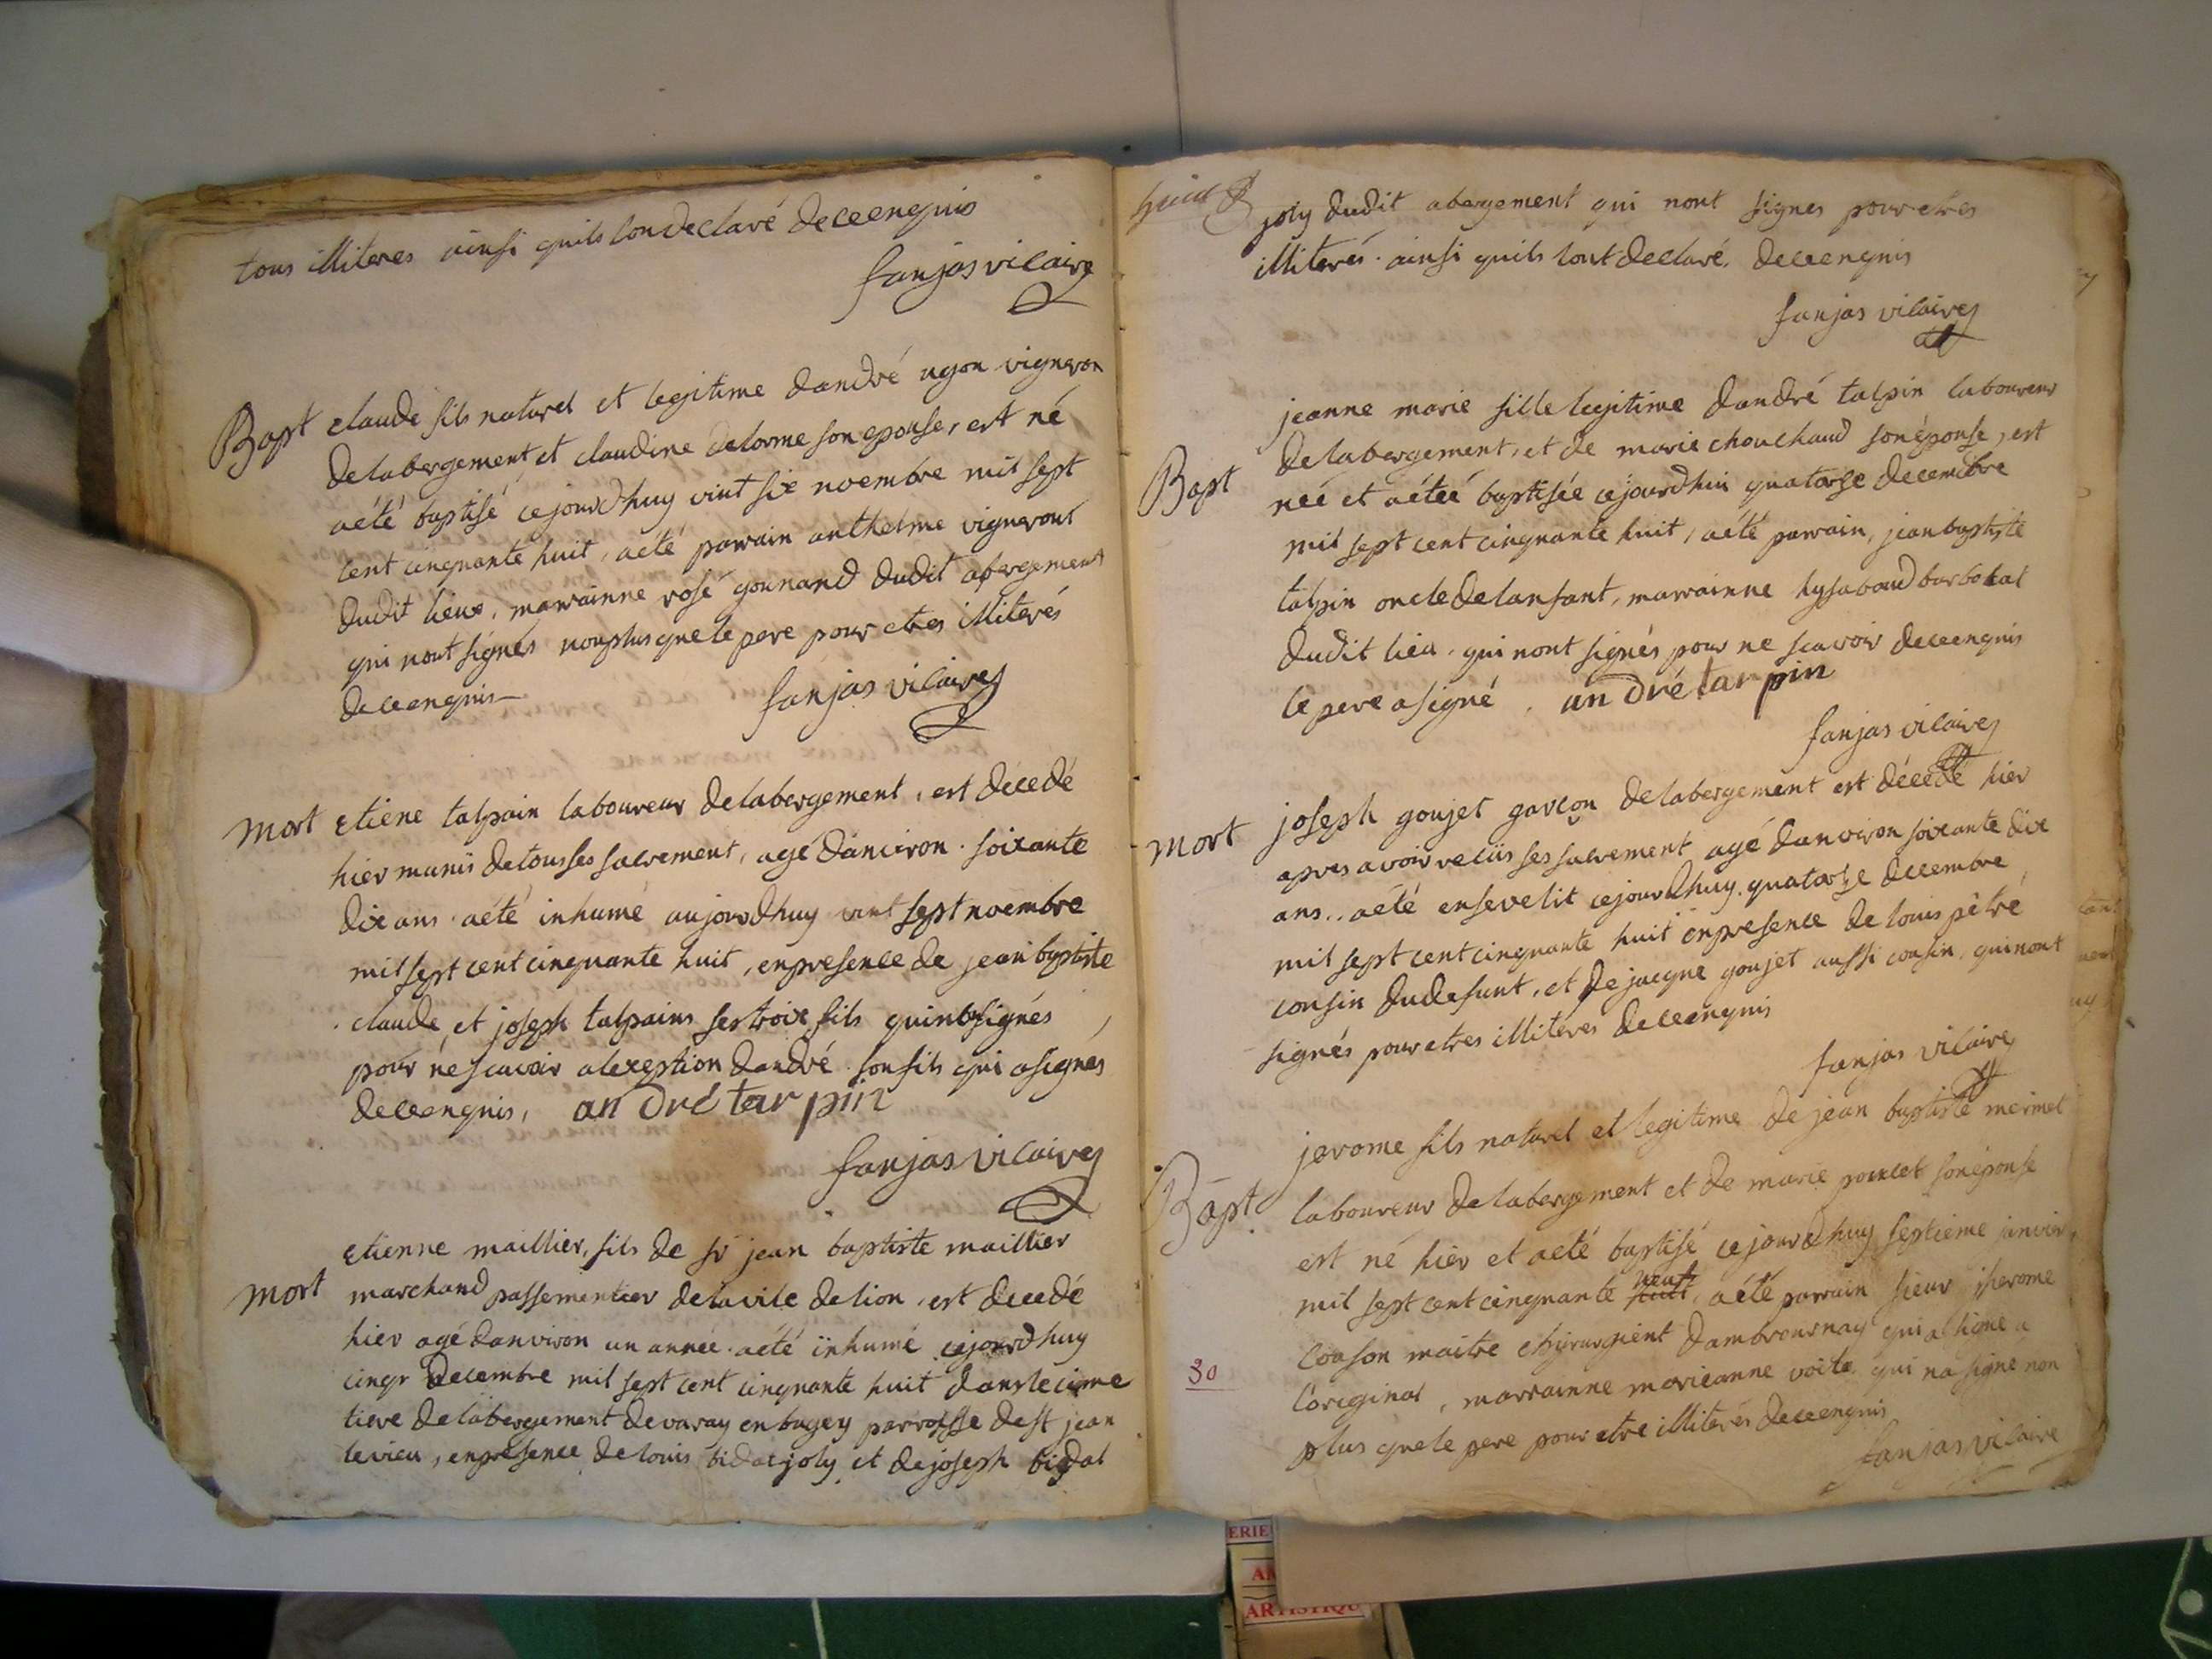 tous illiteres ainsi quils londeclaré deceenquis
fanjas vicaire
Bapt claude fils naturel et legitime dandré ugon vigneron
delabergement et claudine delorme son epouse, est né
aété baptisé cejourdhuy vint six noembre mil sept
cent cinquante huit, aété parrain anthelme vigneront
dudit lieux, marrainne rose gounand dudit abergement
qui nont signés nonplusquele pere pour etres illiterés
deceenquis
fanjas vicaire
mort etiene talpain laboureur delabergement, est décedé
hier munis detousses sacrement, agé danciron soixante
dix ans aété inhumé aujourdhuy vint sept noembre
mil sept cent cinquante huit, enpresence de jean baptiste
claude et joseph talpains ses troix fils
pour ne scavoir alexeption dandré sonfils qui asignés
deceenquis, an dré tar pin
fanjas vicaire
etienne maillier, fils de sr jean baptiste maillier
mort marchand passementier delavile delion, est decedé
hier agé danviron un année aété inhumé cejourdhuy
cinqr decembre mil sept cent cinquante huit dans le cime
tiere delabergement devaray en bugey parroisse dest jean
levieu, enpresence de louis bidatjoly et dejoseph bidat
joly dudit abergement qui nont signes pour etres
illiterés ainsi quils lont declaré, deceenquis
fanjas vicaire
jeanne marie fille legitime dandré talpin laboureur
delabergement, et de marie chouchaud sonéponse, est
Bapt neé et aéteé baptisée cejourdhui quatorse decembre
mil sept cent cinquante huit, aété parrain, jean baptiste
talpin oncledelanfant, marrainne
dudit lieu, qui nont signés pour ne scavoir deceenquis
le pere asigné, an dré tar pin
fanjas vicaire
joseph goujet garcon delabergement est décedé hier
mort apres avoir recüs ses sacrement agé danviron soixante dix
ans, aété ensevelit cejourdhuy quatorse decembre
mil sept cent cinquante huit enpresence de louis pétré
cousin dudefunt, et de jacque goujet aussi cousin, quinont
signés pour etres illiteres deceenquis
fanjas vicaire
jerome fils naturel et legitime de jean baptiste mermet
Bapt laboureur delabergement et de marie poncet sonéponse
est né hier et aeté baptisé cejourdhuy septieme janvier
mil sept cent cinquante neuf huit, aété parrain sieur jherome
coason maitre chyrurgient dambrournay qui a signe a
30 loriginal, marrainne marieanne qui na signe non
plus quele pere pour etre illiterés deceenquis
fanjas vicaire
ERIE
ARTISTIQU